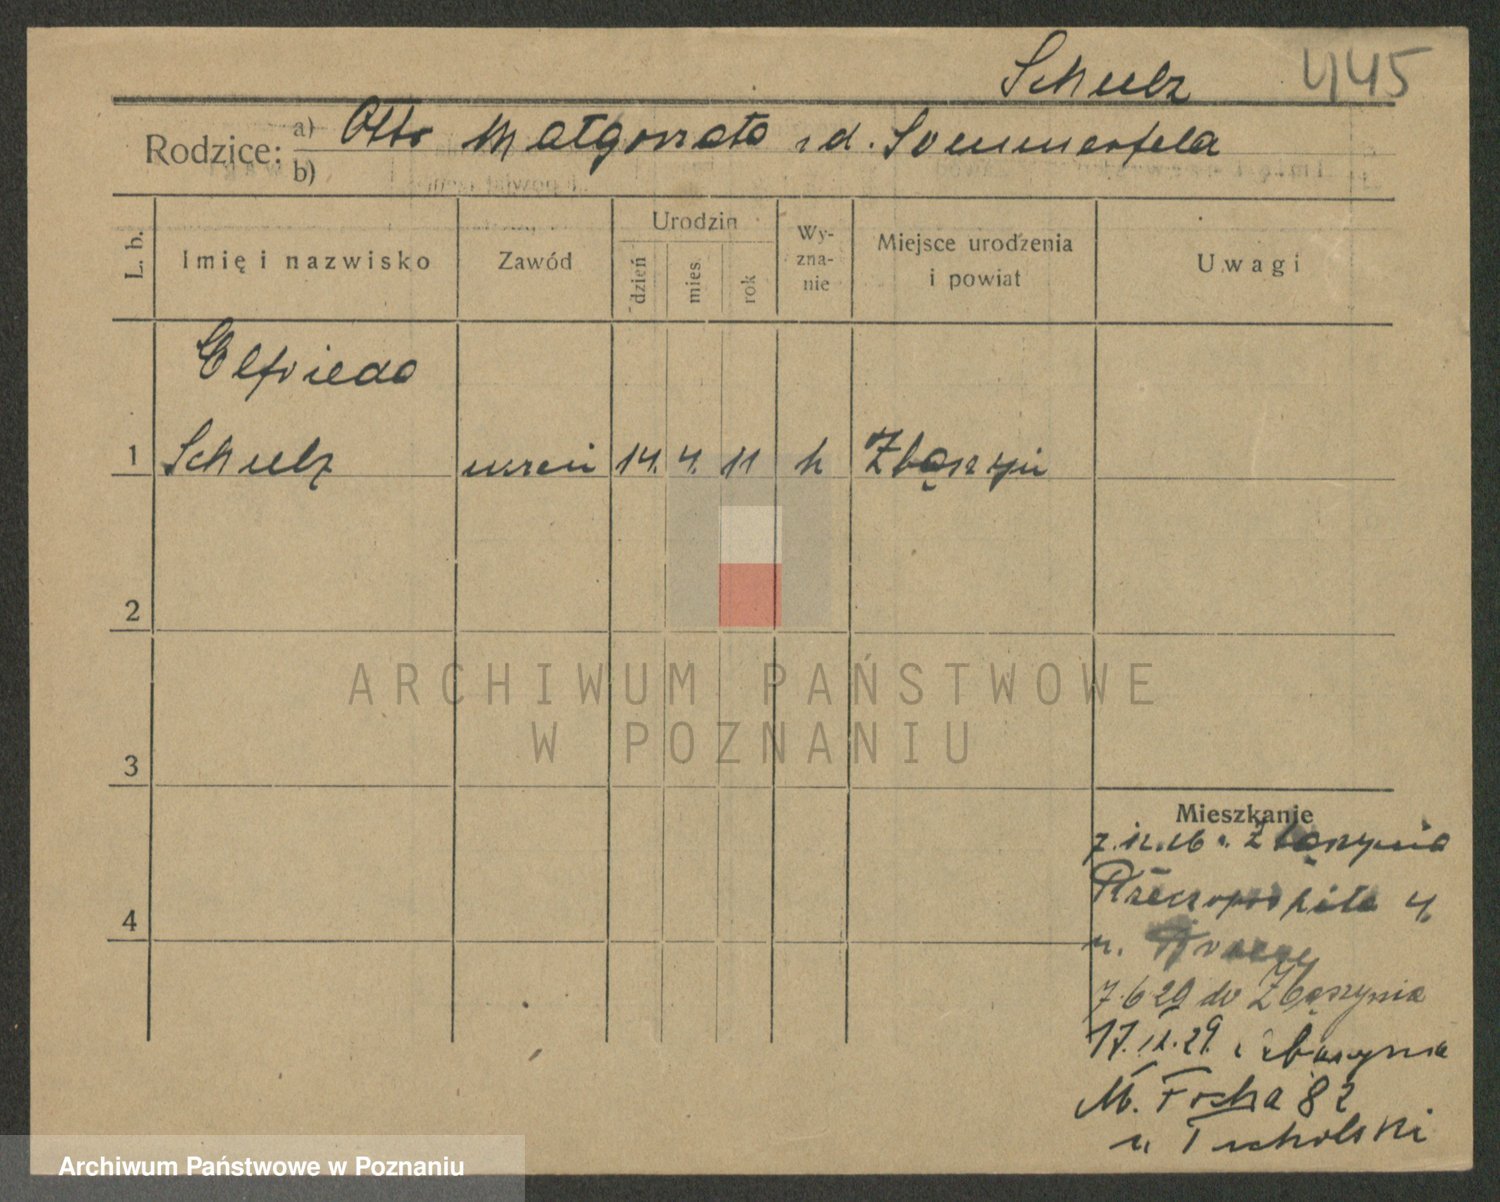 Schulz 445
Rodzice: a) Otto Małgorzata z d. Sommerfeld
b)
L. b. Imię i nazwisko Zawód Urodzin dzień mies. rok Wy-zna-nie Miejsce urodzenia i powiat Uwagi
Elfrieda
1 Schulz uczeń 14. 4. 11 k Zbąszyń
2
3
4
Mieszkanie
7.12.26 z Zbąszynia
Rzeczospolita 4
u.
7.6 29 do Zbąszynia
17.12.29. z Zbąszynia
M. Focha 82
u. Tucholski
ARCHIWUM PAŃSTWOWE
W POZNANIU
Archiwum Państwowe w Poznaniu